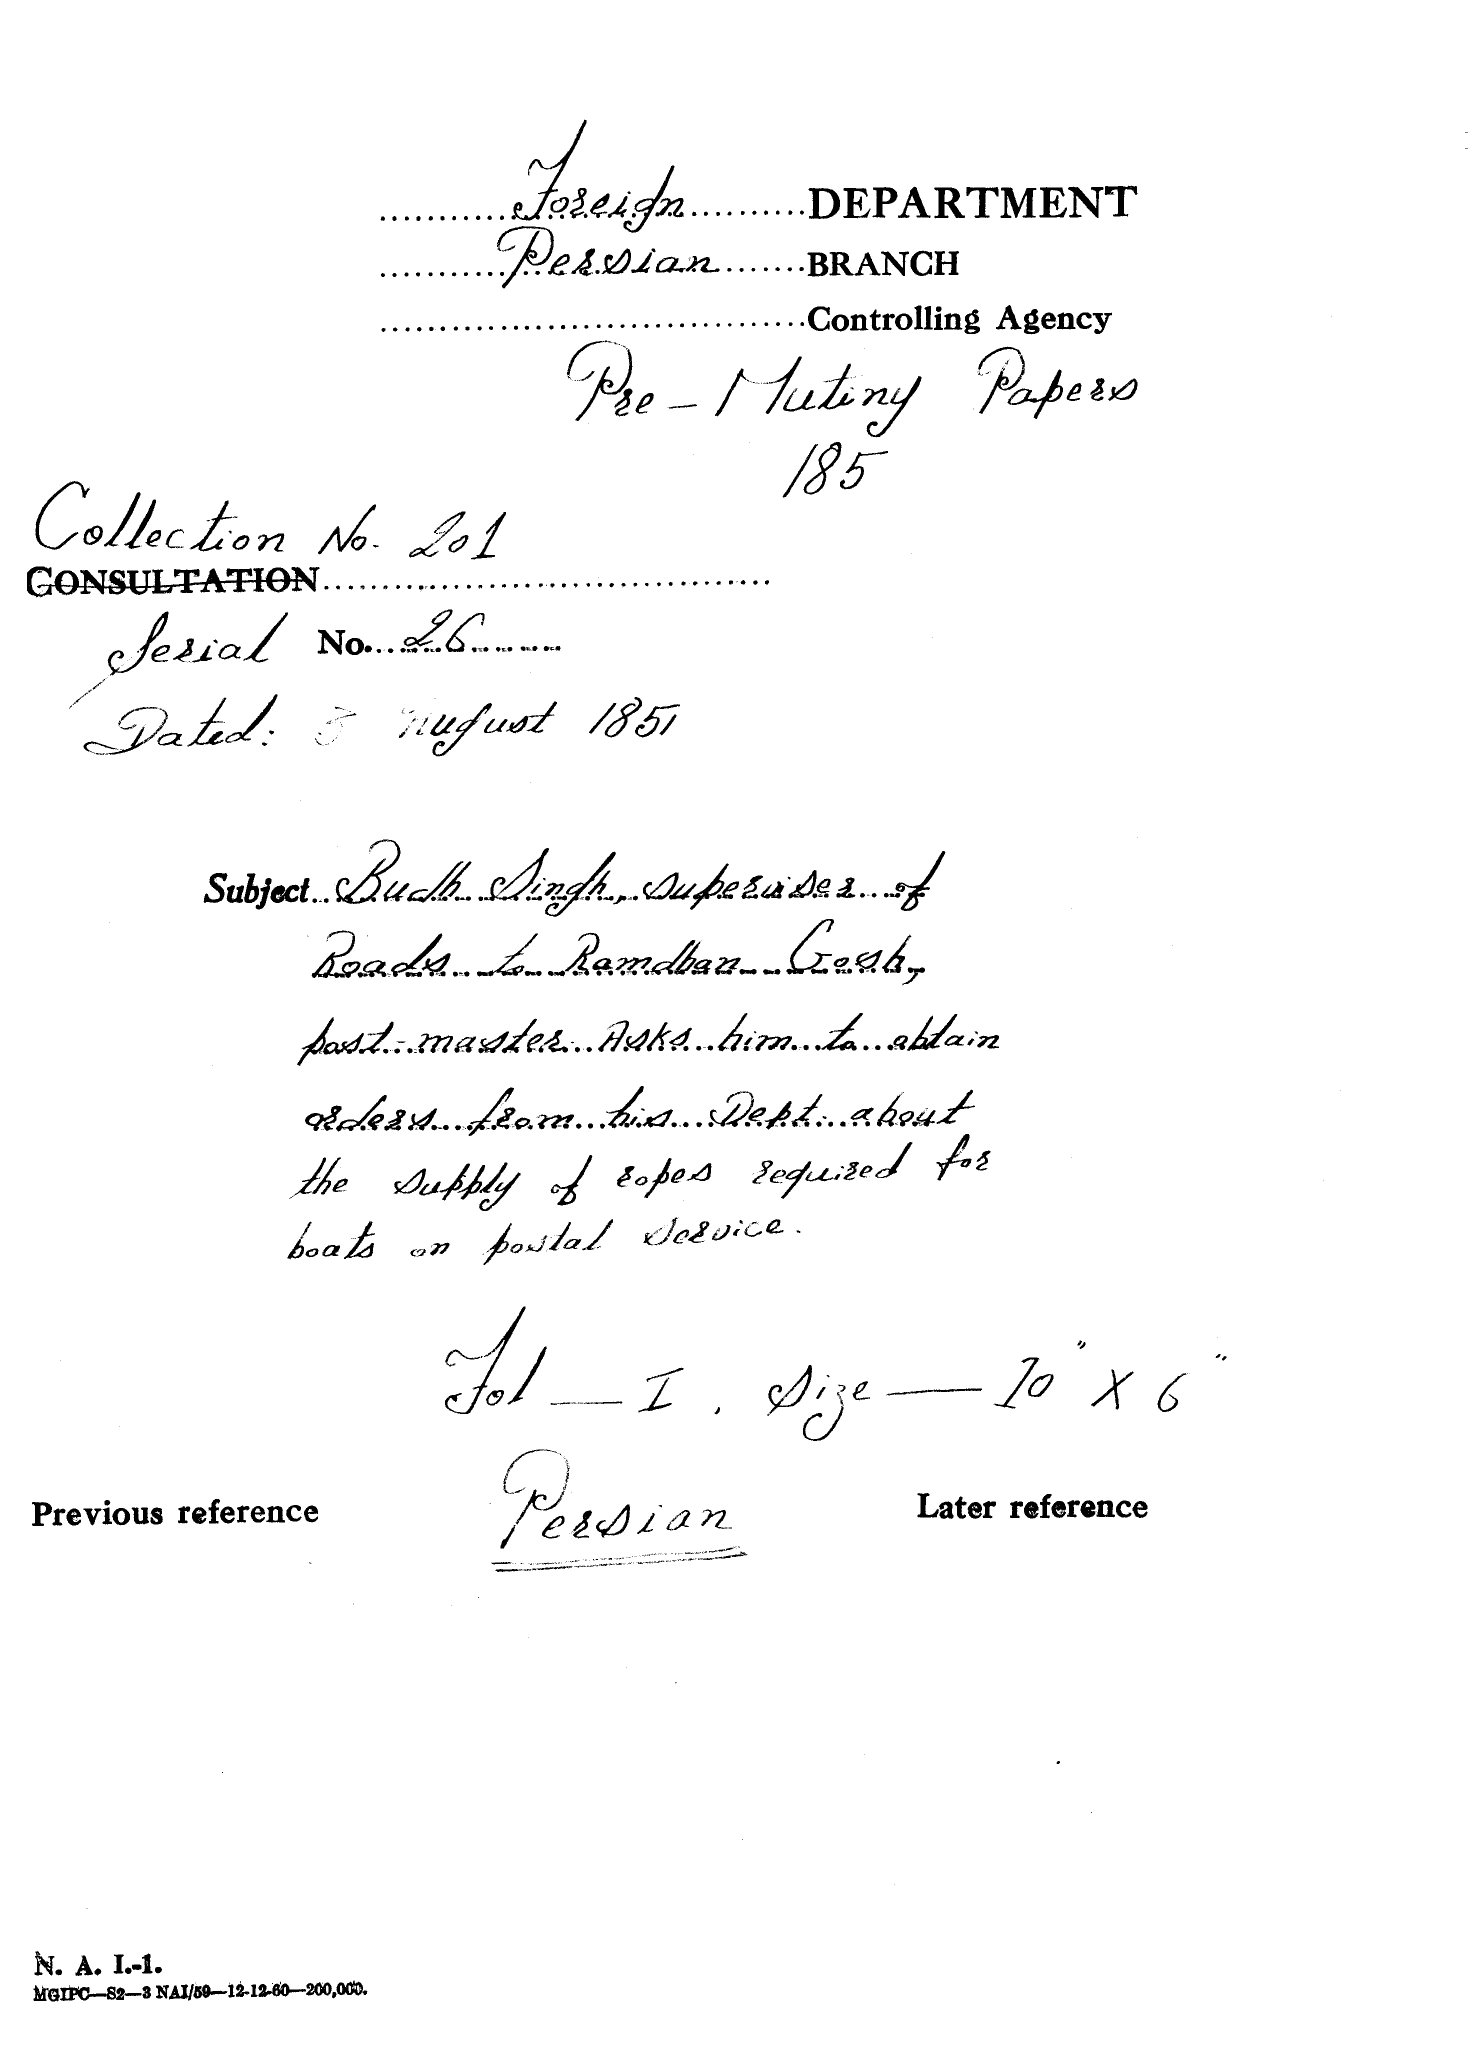 Foreign DEPARTMENT
Persian BRANCH
Controlling Agency
Pre-Mutiny Papers
185
Collection No. 201
CONSULTATION
Serial No. 26
Dated: August 1851
Subject Budh Singh, superviser of
Roads to Ramdhan Gosh,
post-master. Asks him to obtain
orders from his Dept. about
the supply of ropes required for
boats on postal service.
Fol — I. Size — 10" X 6"
Previous reference Persian Later reference
N. A. I.-1.
MGIPC—S2—3 NAI/59—12-12-60—200,000.